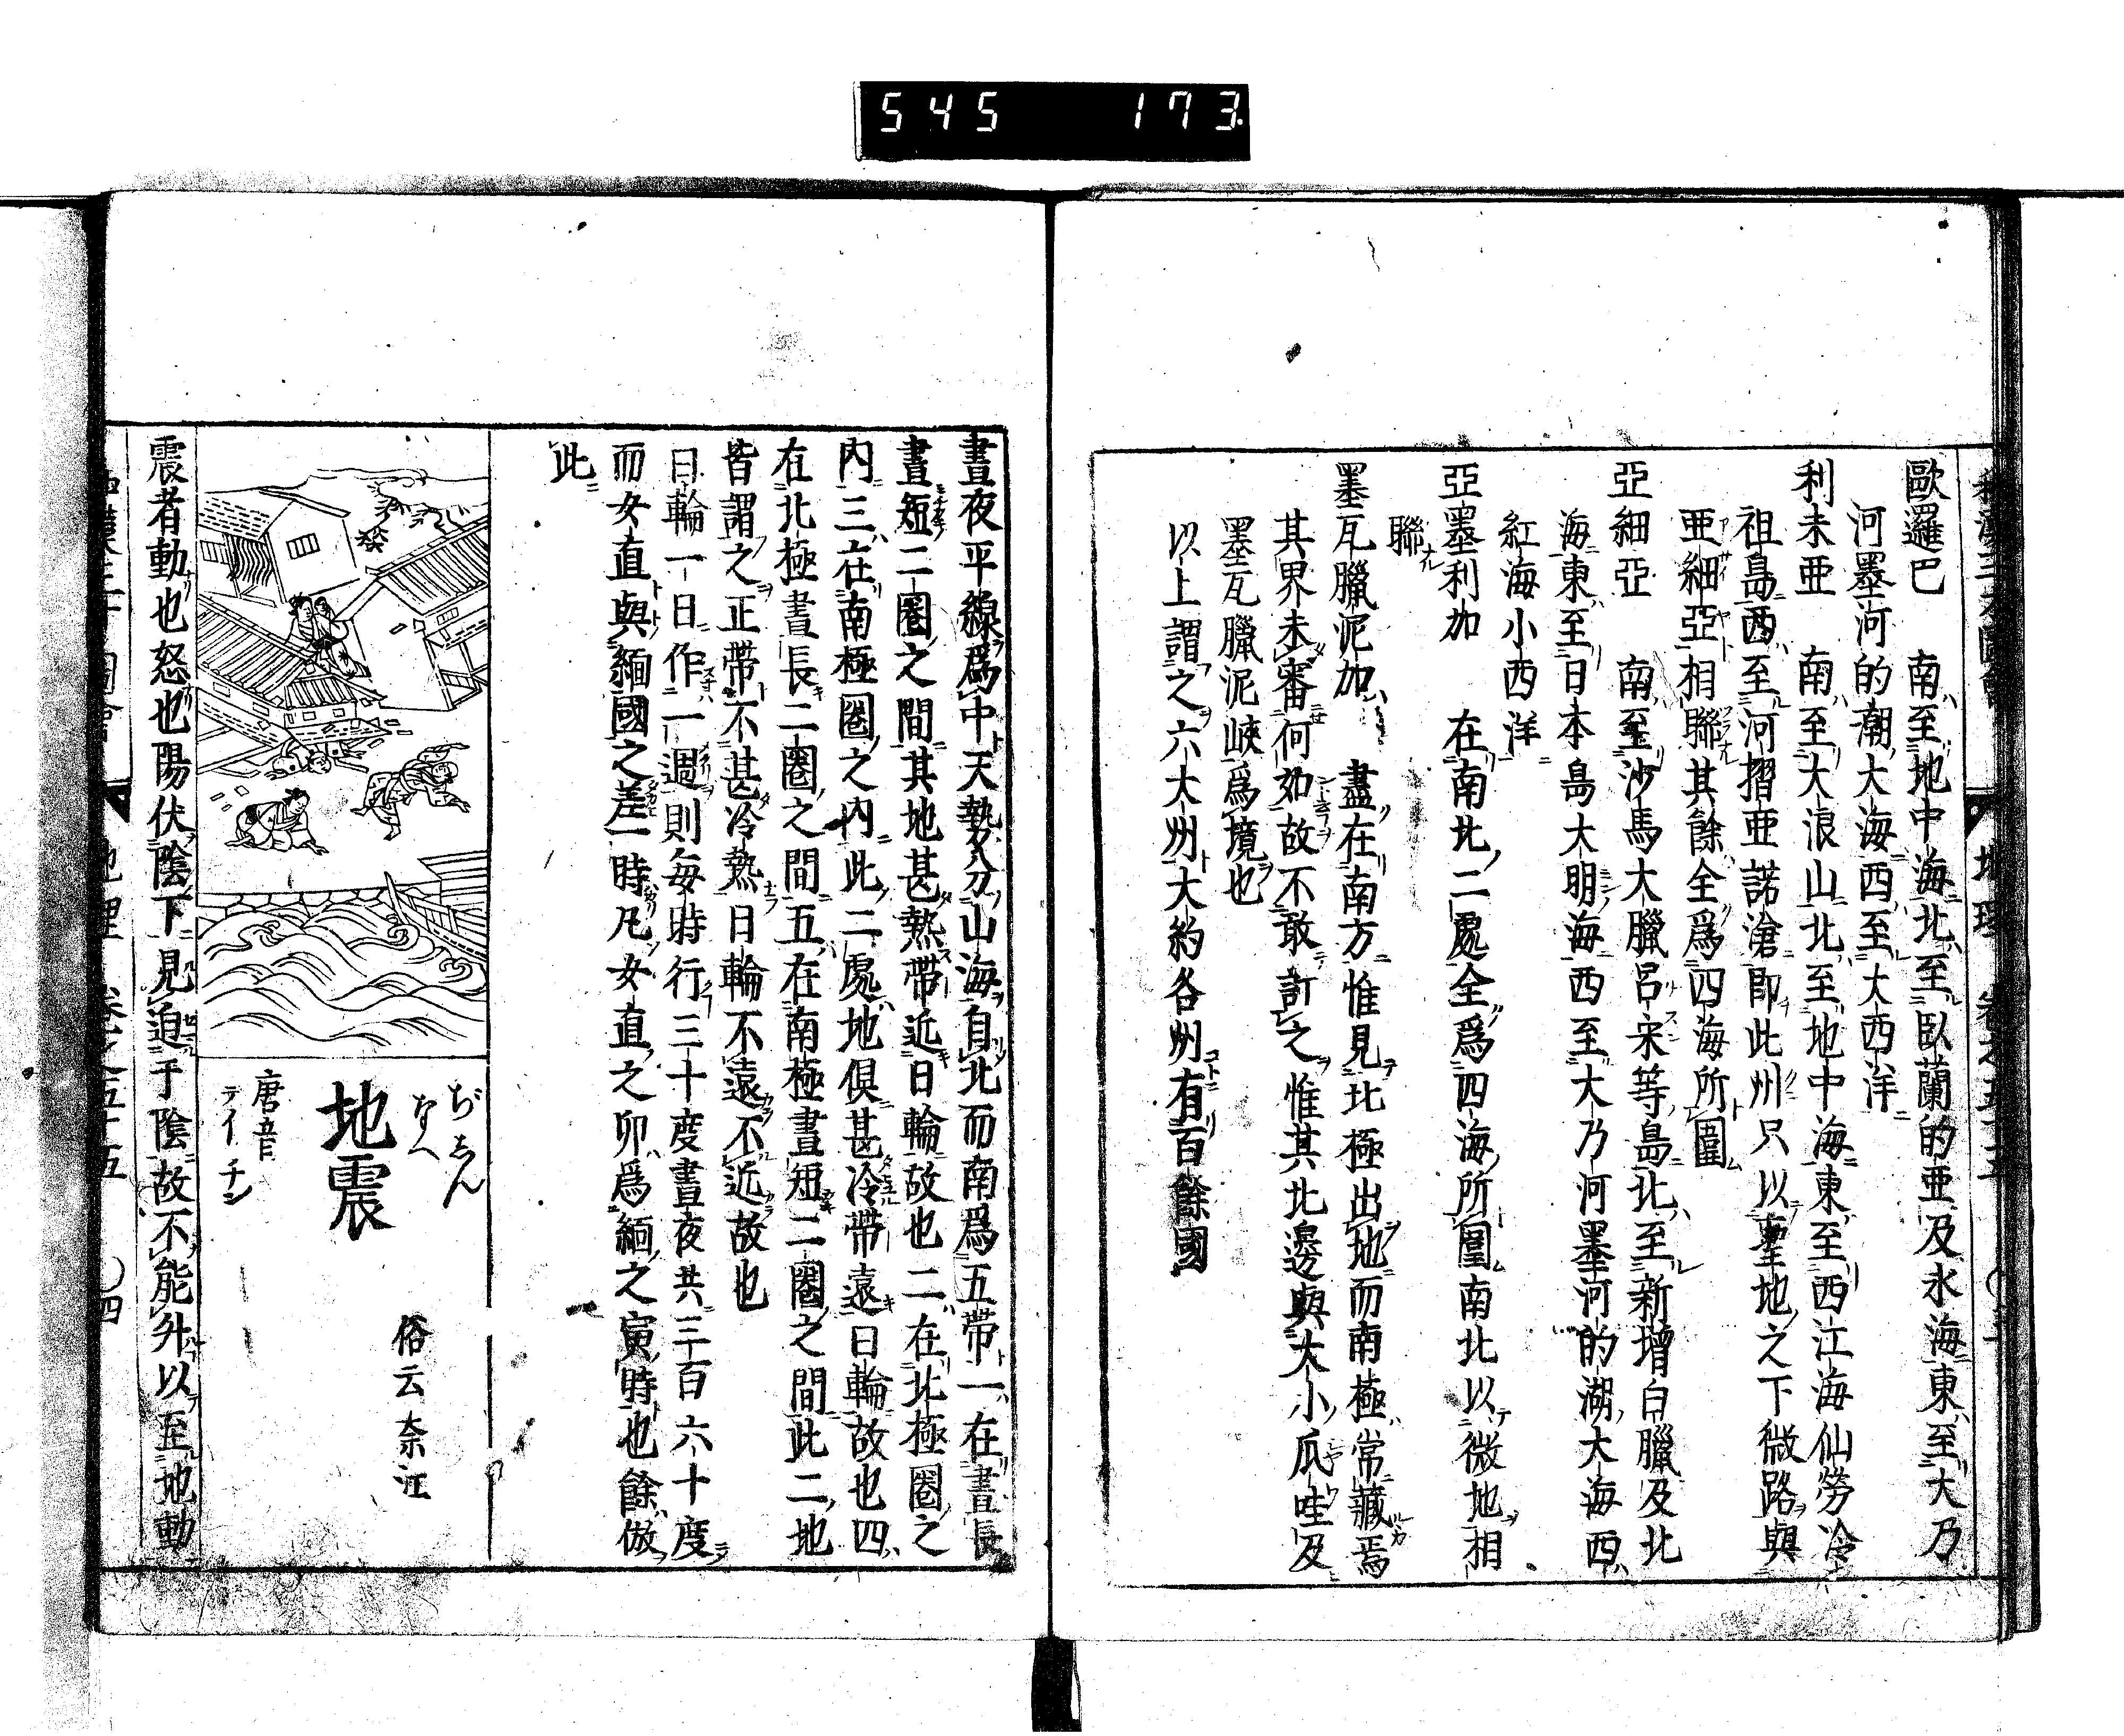 545 173
歐邏巴 南至地中海北至臥蘭的亜及氷海東至大乃
河墨河的潮大海西至大西洋
利未亜 南至大浪山北至地中海東至西江海仙勞冷
祖島西至河摺亜諾滄即此州只以聖地之下微路與
亜細亞相聯其餘全爲四海所圍
亞細亞 南至沙馬大臘呂宋等島北至新增白臘及北
海東至日本島大明海西至大乃河墨河的湖大海西
紅海小西洋
亞墨利加 在南北二處全爲四海所圍南北以微地相
聯
墨瓦臘泥加 盡在南方惟見北極出地而南極常藏焉
其界未審何如故不敢訂之惟其北邊與大小瓜哇及
墨瓦臘泥峽爲境也
以上謂之六大州大約各州有百餘國
晝夜平線爲中天勢分山海自北而南爲五帶一在晝長
晝短二圈之間其地甚熱帶近日輪故也二在北極圈之
内三在南極圈之内此二處地俱甚冷帶遠日輪故也四
在北極晝長二圈之間五在南極晝短二圈之間此二地
皆謂之正帶不甚冷熱日輪不遠不近故也
日輪一日作一週則毎時行三十度晝夜共三百六十度
而女直與緬國之差一時凡女直之卯爲緬之寅時也餘倣
此
ぢしん
なへ
地震
俗云奈江
唐音
テイ チン
震者動也怒也陽伏陰下見迫于陰故不能升以至地動
地理 卷之五十五 〇四